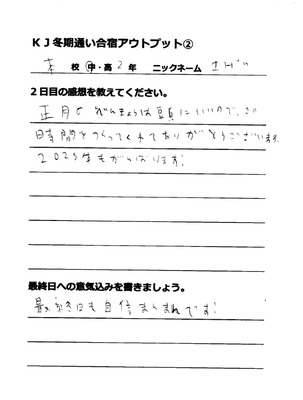 KJ冬期通い合宿アウトプット②
本 校 中・高 2年 ニックネーム エドム
2日目の感想を教えてください。
正月のべんきょうは頭にいいので、この
時間をつくってくれてありがとうございます。
2025年もがんばります!
最終日への意気込みを書きましょう。
最終日も自信まんまんです!